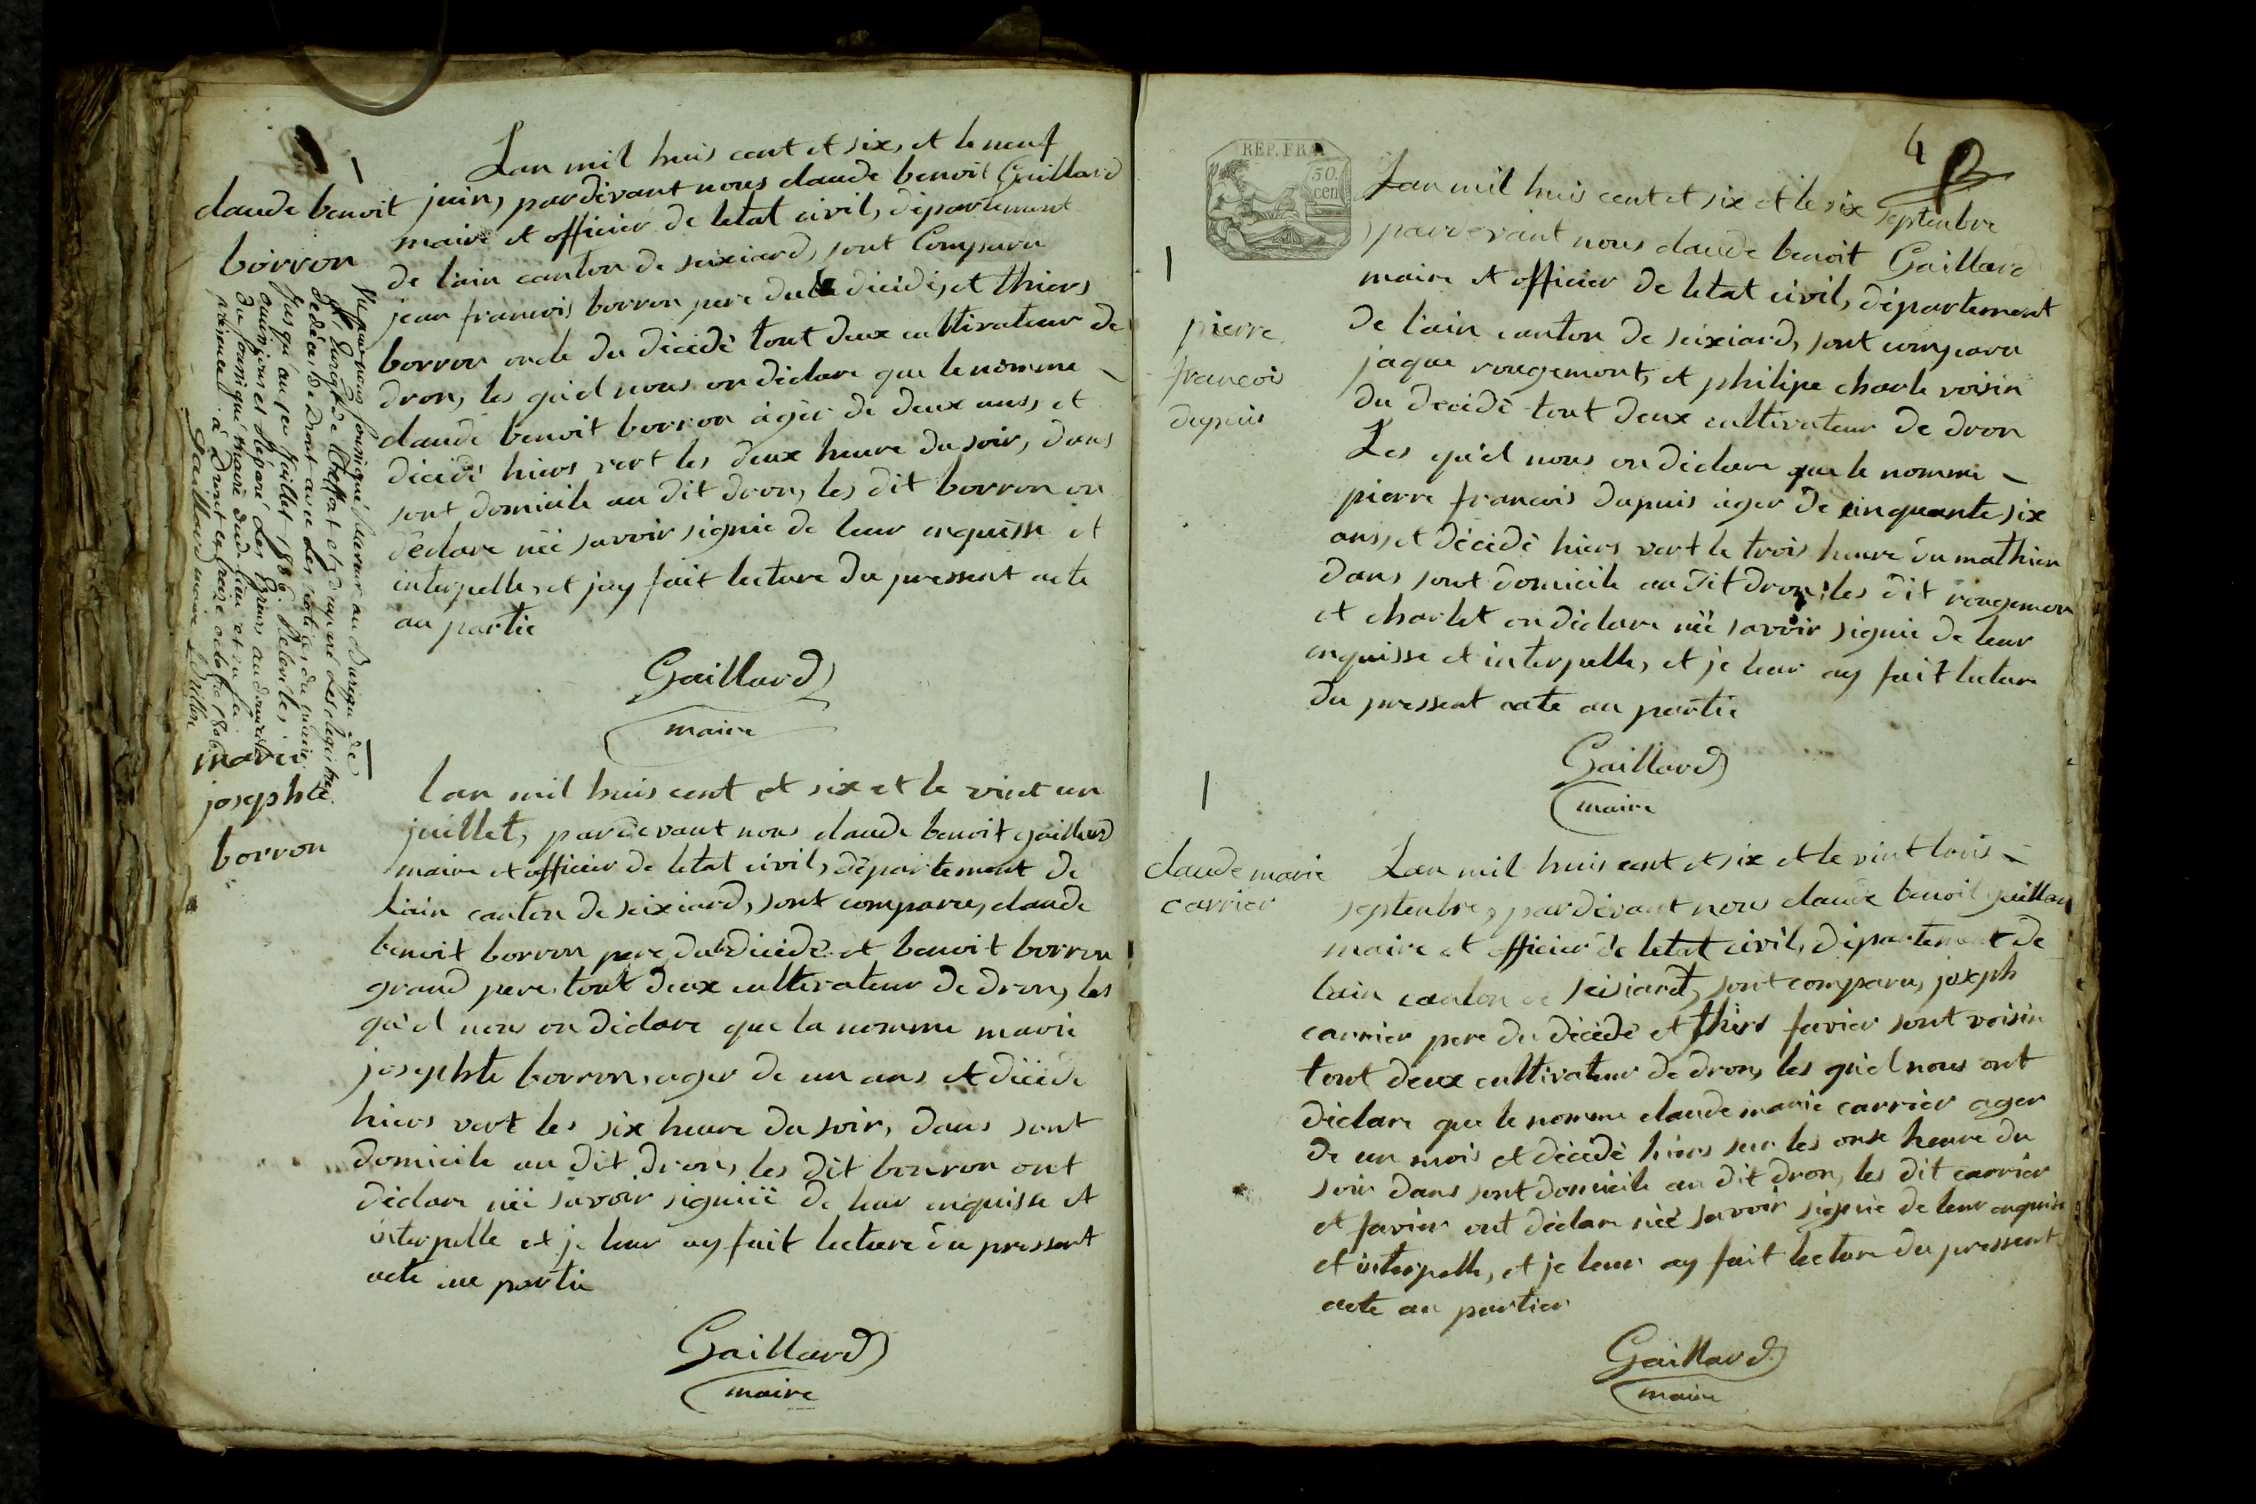 Lan mil huis cent et six, et le neuf
claude benoit
borron
juin, pardevant nous claude benoit Gaillard
maire et officier de letat civil, departement
de l'ain canton de seixiard, sont Comparu
jean francois borron pere du decidé, et thiers
borron oncle du décidé tout deux cultivateur de
dron, les qu'el nous on déclare que le nomme
claude benoit borron àgér de deux ans, et
décidé hiers vert les deux heure du soir, dans
sont domicile au dit dron, les dit borron on
déclare néé savoir signie de leur enquisse et
interpelle, et jay fait lecture du pressent acte
au partie
Gaillard
maire
Vu par nous soussigné Receveur au Bureau de
jusqu'au juillet 1806.
du soussigné maire dud. lieu et en sa
présence à Dront
Gaillard maire
marie
josephte
borron
lan mil huis cent et six et le vint un
juillet, pardevant nous claude benoit gaillard
maire et officier de letat civil, département de
lain canton de seixiard, sont comparu, claude
benoit borron pere du décidé et benoit borron
grand pere tout deux cultivateur de dron, les
qu'el nous on déclare que la nomme marie
josephte borron, ager de un ans et décéde
hiers vert les six heure du soir, dans sont
domicile au dit dron, les dit borron ont
déclare néé savoir signiéé de leur enquisse et
interpelle et je leur ay fait lecture du pressent
acte au partie
Gaillard
maire
4
REP. FRA.
50.
cen
Lan mil huis cent et six et le six septenbre
pardevant nous claude benoit Gaillard
maire et officier de letat civil, département
de l'ain canton de seixiard, sont comparu
pierre
francois
dupuis
jaque rougemont, et philipe charle voisin
du decidé tout deux cultivateur de dron
Les qu'el nous on déclare que le nomme
pierre francois dupuis àger de cinquante six
ans, et décidé hiers vert le trois heure du mathien
dans sont domicile au dit dron, les dit rougemon
et charlet on déclare néé savoir signie de leur
enquisse et interpelle, et je leur ay fait lecture
du pressent acte au partie
Gaillard
maire
claude marie
carrier
Lan mil huis cent et six et le vint trois
septenbre, pardevant nous claude benoit gaillar
maire et officier de letat civil, département de
lain canton de seisiard, sont comparu, joseph
carrier pere du décédé et thiers favier sont voisin
tout deux cultivateur de dron, les qu'el nous ont
déclare que le nomme claude marie carrier ager
de un mois et décédé hiers sur les onse heure du
soir dans sont domicile au dit dron, les dit carrier
et favier ont déclare néé savoir signie de leur enquise
et interpelle, et je leur ay fait lecture du pressent
acte au partier
Gaillard
maire